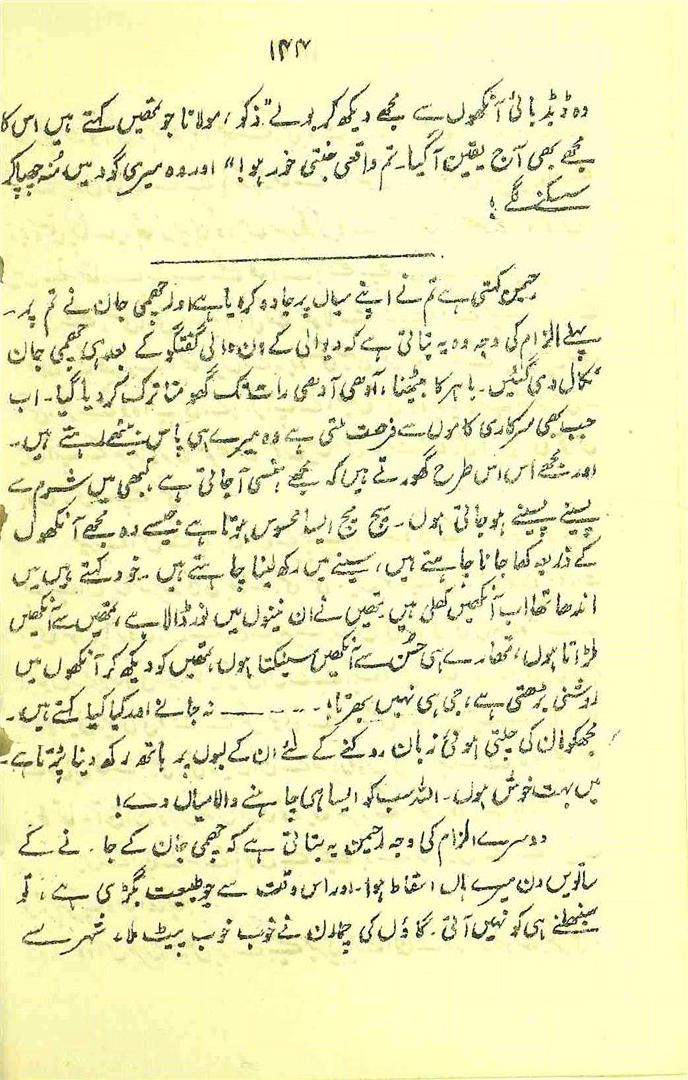 ۱۴۴
وہ ڈبڈبائی آنکھوں سے مجھے دیکھ کر بولے "ذکو، مولانا جو تمھیں کہتے ہیں اس کا
مجھے بھی آج یقین آ گیا۔ تم واقعی جنتی خور ہو!" اور وہ میری گود میں منہ چھپا کر
سسکنے لگے!
رحیمن کہتی ہے تم نے اپنے میاں پر جادو کر دیا ہے اور چھمی جان نے تم پر۔
پہلے الزام کی وجہ وہ یہ بتاتی ہے کہ دیوالی کے دن والی گفتگو کے بعد ہی چھمی جان
نکال دی گئیں۔ باہر کا بیٹھنا، آدھی آدھی رات تک گھومنا ترک کر دیا گیا۔ اب
جب بھی سرکاری کاموں سے فرصت ملتی ہے وہ میرے ہی پاس بیٹھے رہتے ہیں۔
اور مجھے اس اس طرح گھورتے ہیں کہ مجھے ہنسی آ جاتی ہے، کبھی میں شرم سے
پسینے پسینے ہو جاتی ہوں۔ سچ مچ ایسا محسوس ہوتا ہے جیسے وہ مجھے آنکھوں
کے ذریعہ کھا جانا چاہتے ہیں، سینے میں رکھ لینا چاہتے ہیں۔ خود کہتے ہیں میں
اندھا تھا اب آنکھیں کھلی ہیں۔ تمھیں نے ان نینوں میں نور ڈالا ہے، تمھیں سے آنکھیں
لڑاتا ہوں، تمھارے ہی حسن سے آنکھیں سینکتا ہوں، تمھیں کو دیکھ کر آنکھوں میں
روشنی بڑھتی ہے، جی ہی نہیں بھرتا! ۔۔۔۔ نہ جانے اور کیا کیا کہتے ہیں۔
مجھ کو ان کی چلتی ہوئی زبان روکنے کے لئے ان کے لبوں پر ہاتھ رکھ دینا پڑتا ہے۔
میں بہت خوش ہوں۔ اللہ سب کو ایسا ہی چاہنے والا میاں دے!
دوسرے الزام کی وجہ رحیمن یہ بتاتی ہے کہ چھمی جان کے جانے کے
ساتویں دن میرے ہاں اسقاط ہوا۔ اور اس وقت سے جو طبیعت بگڑی ہے، تو
سنبھلنے ہی کو نہیں آتی۔ گاؤں کی چمارن نے خوب خوب پیٹ ملا، شہر سے